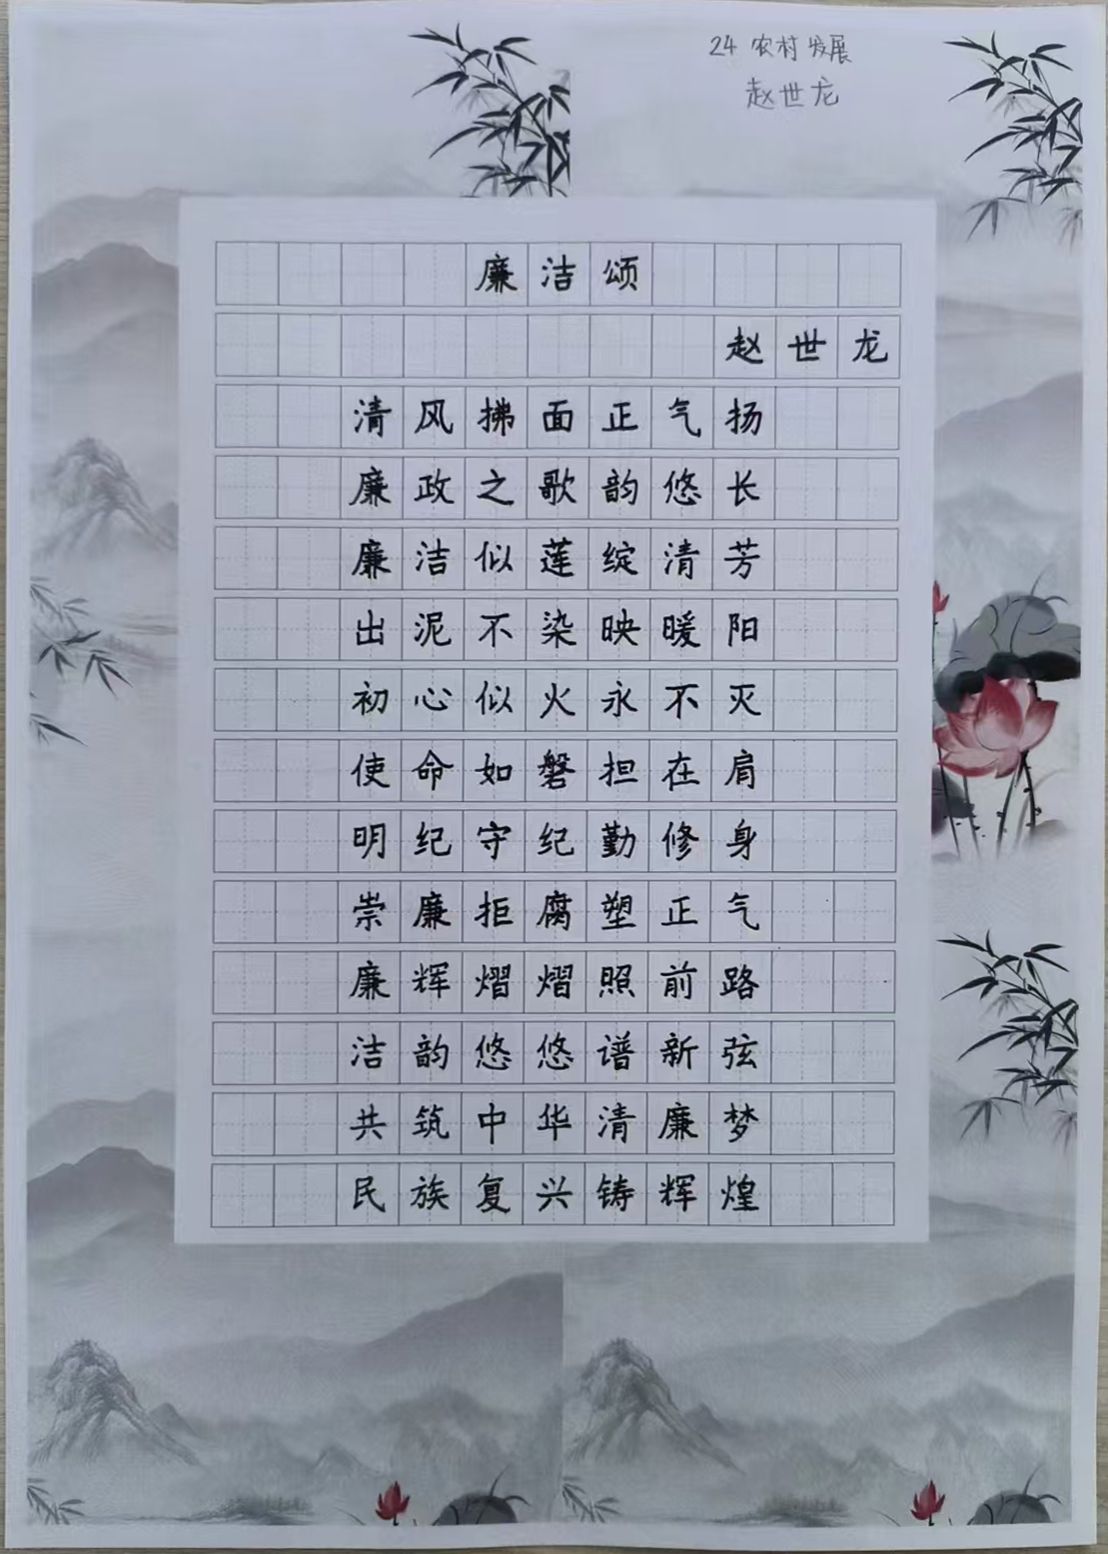 24 农村发展
赵世龙
廉洁颂
赵世龙
清风拂面正气扬
廉政之歌韵悠长
廉洁似莲绽清芳
出泥不染映暖阳
初心似火永不灭
使命如磐担在肩
明纪守纪勤修身
崇廉拒腐塑正气
廉辉熠熠照前路
洁韵悠悠谱新弦
共筑中华清廉梦
民族复兴铸辉煌